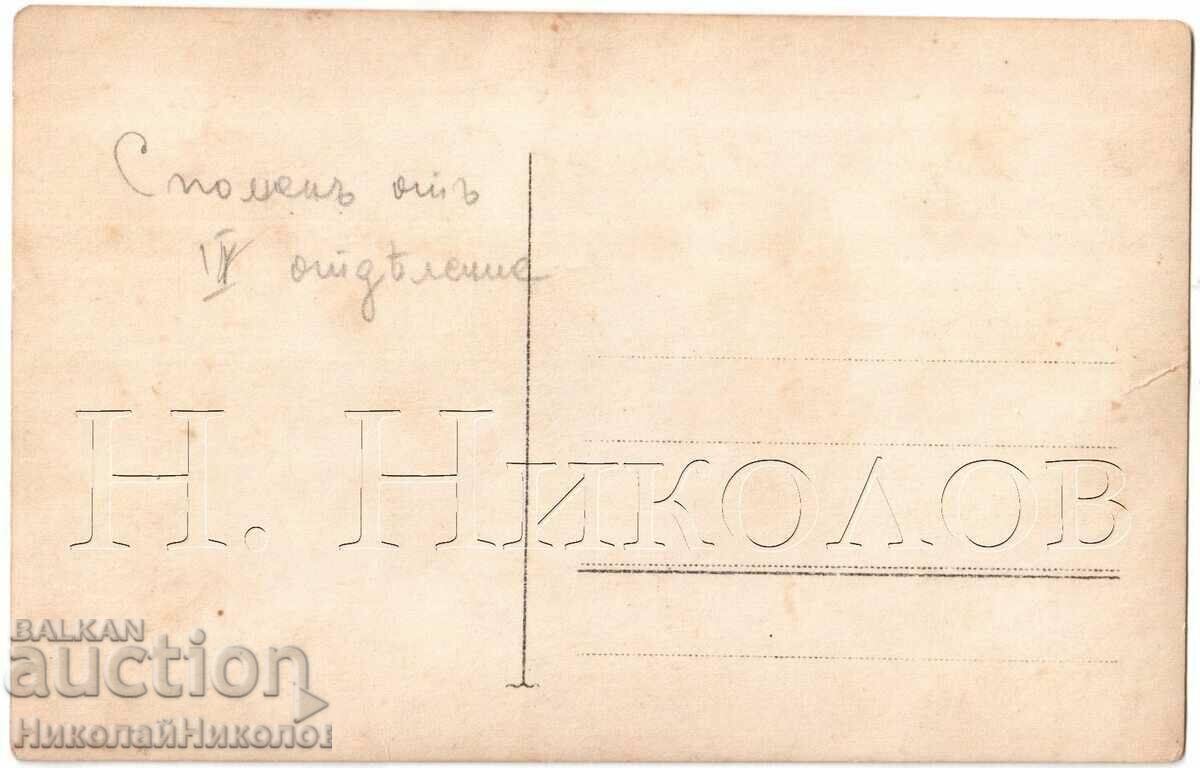 Споменъ отъ
IV отдѣление
Н. Николов
BALKAN
auction
НиколайНиколов